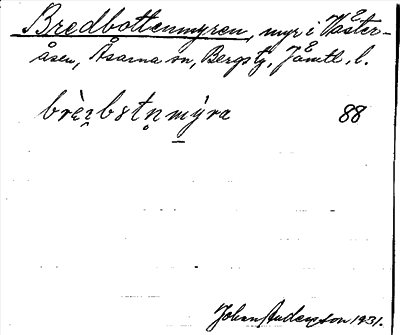 Bredbottenmyren, myr i Väster-
åsen, Åsarna sn, Bergs tg, Jämtl. l.
brèi̯bɵtn̥mýra 88
Johan Anderson 1931.